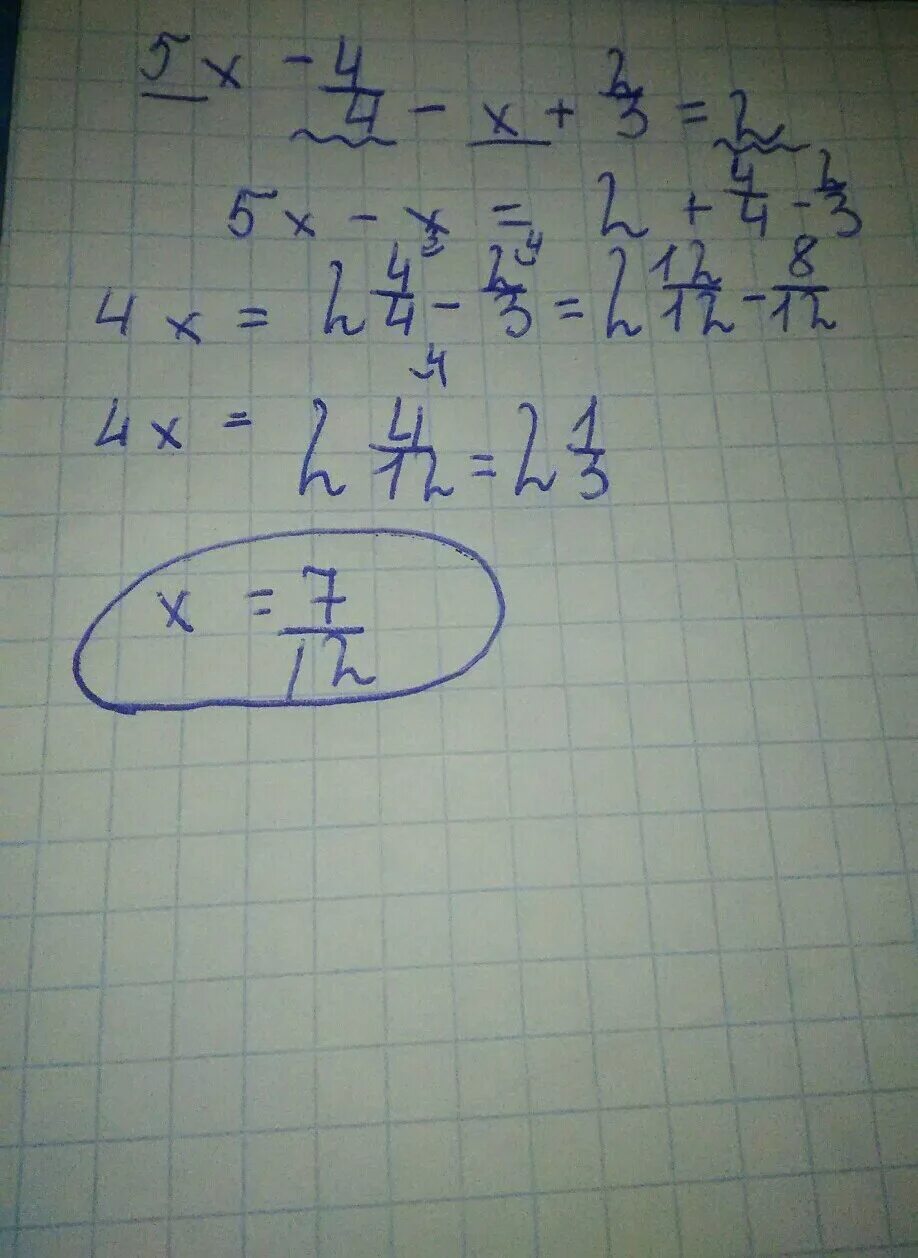 5x - 4/4 - x + 2/3 = 2
5x - x = 2 + 4/4 - 2/3
4x = 2 4/4 ³ - 2/3 ⁴ = 2 12/12 - 8/12
4x = 2 4/12 ⁴ = 2 1/3
x = 7/12